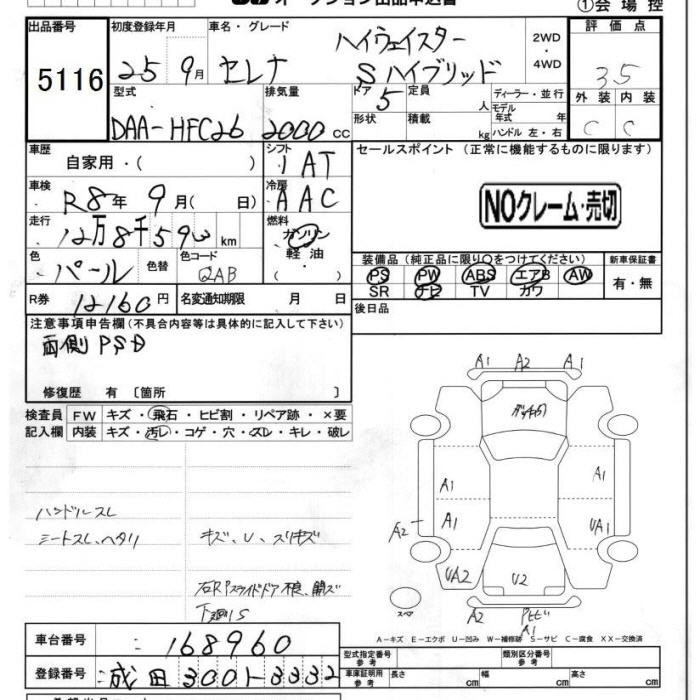 ①会場控
出品番号 初度登録年月 車名・グレード 2WD 評価点
5116 25 9月 セレナ ハイウェイスター
Sハイブリッド ・4WD 3.5
型式 排気量 ドア 定員 ディーラー・並行 外装 内装
DAA-HFC26 2000cc 5 人 モデル年式 年 C C
形状 積載 kg ハンドル 左・右
車歴 シフト セールスポイント(正常に機能するものに限ります)
自家用・( ) ・I AT
車検 冷房
R8年 9月( 日) ・AAC NOクレーム・売切
走行 燃料
12万8千593km ガソリン
軽油 装備品(純正品に限り○をつけてください) 新車保証書
色 色替 色コード PS PW ABS エアB AW 有・無
パール QAB SR ナビ TV カワ
R券 12160円 名変通知期限 月 日 後日品
注意事項申告欄(不具合内容等は具体的に記入して下さい)
両側PSD
修復歴 有〔箇所 〕
検査員 FW キズ・飛石・ヒビ割・リペア跡・×要
記入欄 内装 キズ・汚レ・コゲ・穴・スレ・キレ・破レ
A1 A2 A1
A1 A1
A2 A1 UA1
UA2 U2
A2 A1
スペア
ハンドルスレ
シートスレ、ヘタリ キズ、U、スリキズ
右Rrスライドドア不良、開ズ
下廻りS
A-キズ E-エクボ U-凹み W-補修跡 S-サビ C-腐食 XX-交換済
車台番号 : 168960 型式指定番号 参考 類別区分番号 参考
登録番号 : 成田 300 ト 3332 車庫証明用 参考 長さ cm 幅 cm 高さ cm